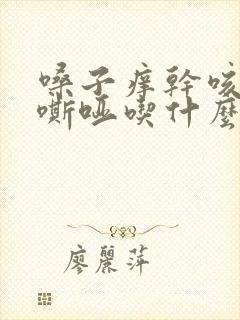 嗓子痒幹咳
嘶哑喫什麽
廖麗萍